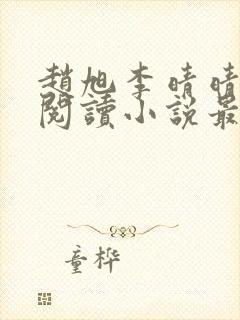 趙旭李晴晴
閱讀小說最
童樺